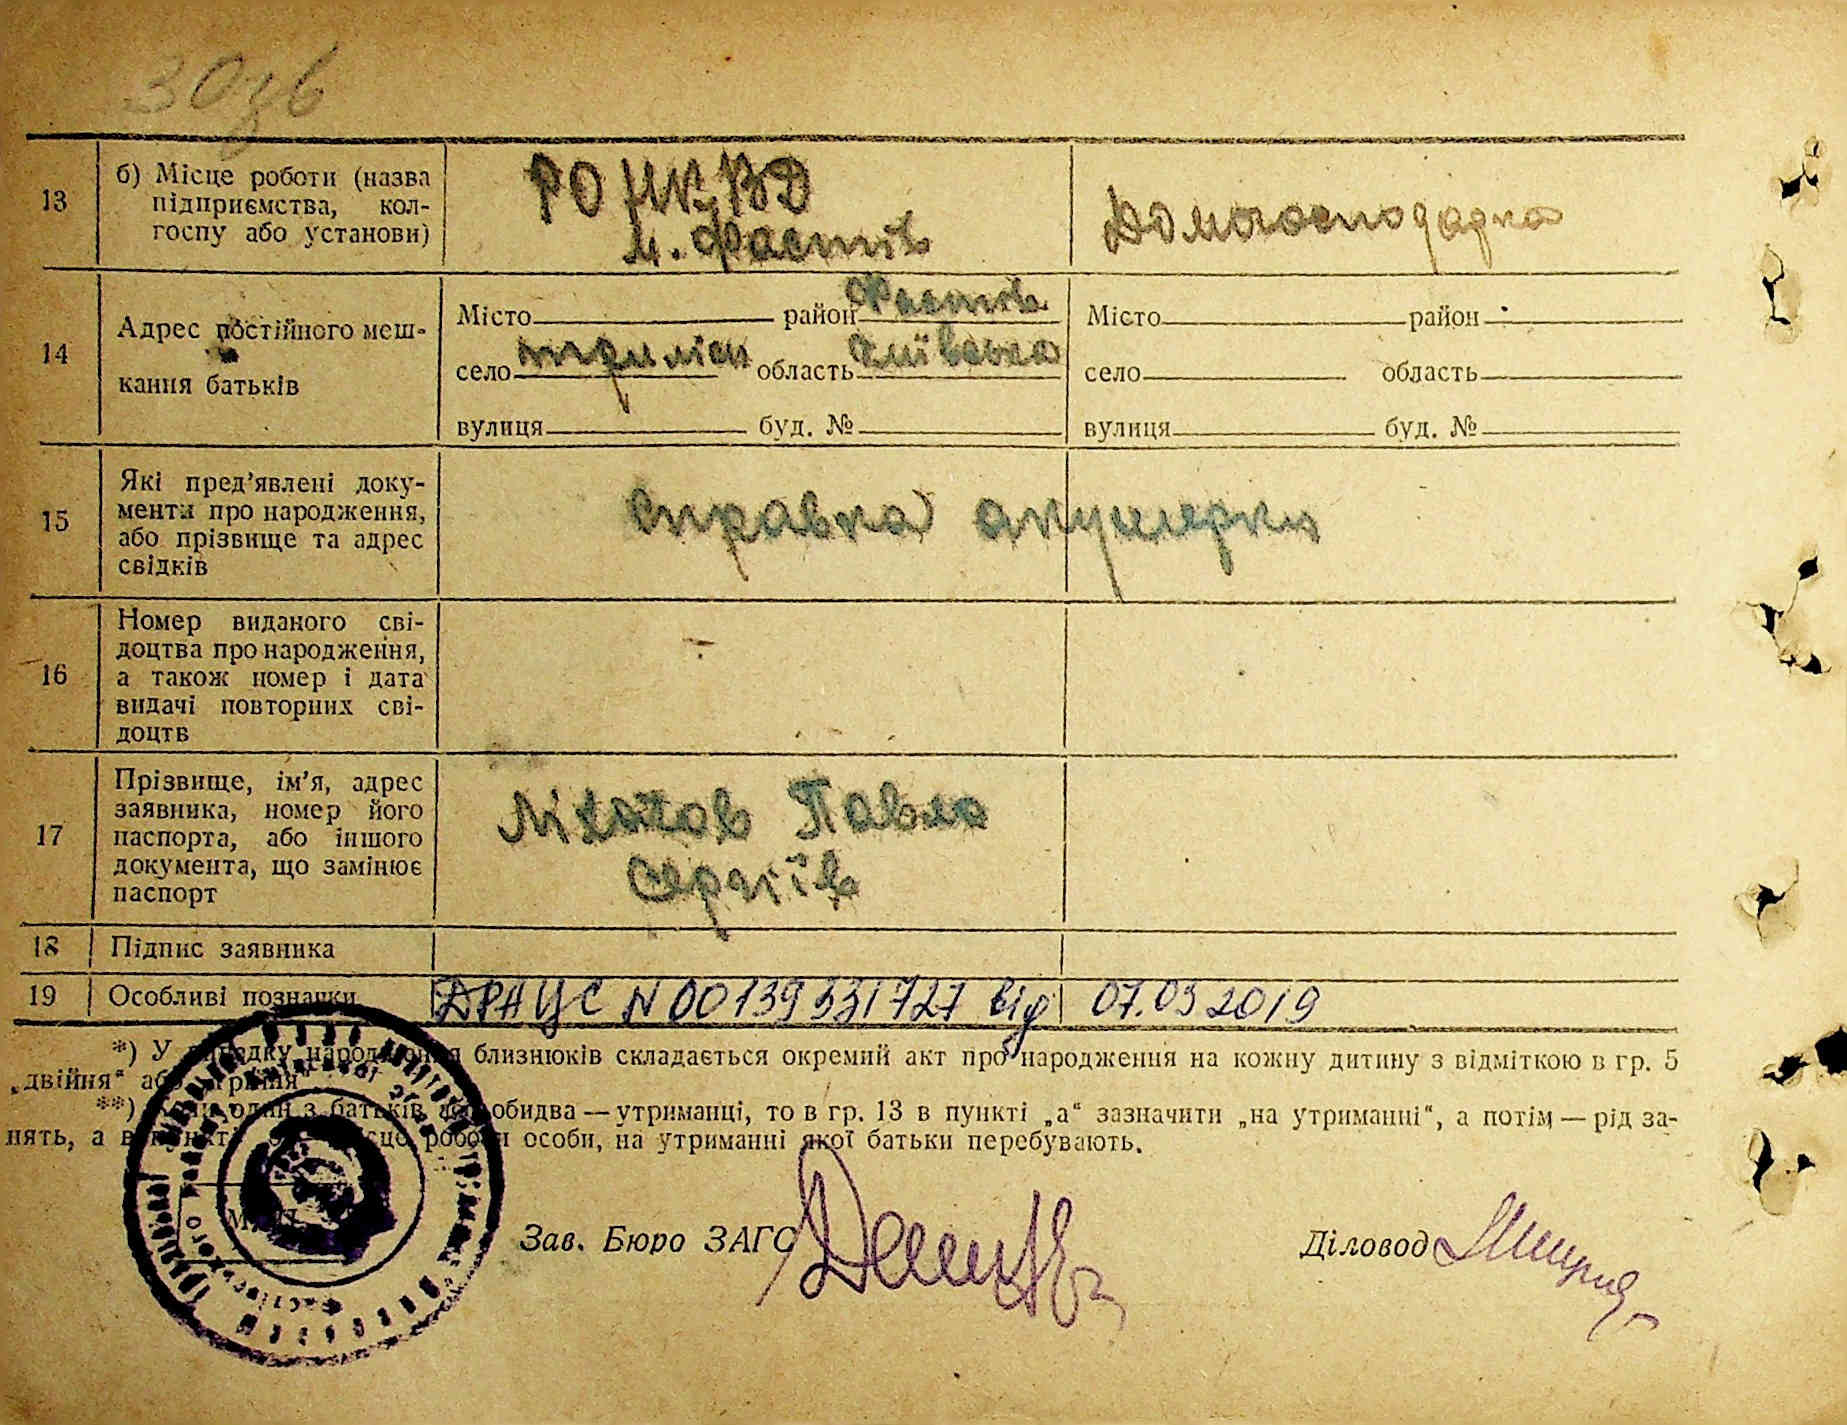 30зв
13
б) Місце роботи (назва
підприємства, кол-
госпу або установи)
РО НКВД
м. Фастів
Домогосподарка
14
Адрес постійного меш-
кання батьків
Місто район Фастів
село область Київська
вулиця буд. №
Місто район
село область
вулиця буд. №
15
Які пред’явлені доку-
менти про народження,
або прізвище та адрес
свідків
справка акушерки
16
Номер виданого сві-
доцтва про народження,
а також номер і дата
видачі повторних сві-
доцтв
17
Прізвище, ім’я, адрес
заявника, номер його
паспорта, або іншого
документа, що замінює
паспорт
Павло
Сергіїв
18
Підпис заявника
19
Особливі позначки
ДРАЦС N 00139331727 від 07.03 2019
*) У випадку народження близнюків складається окремий акт про народження на кожну дитину з відміткою в гр. 5
„двійня“ або
**) Коли один з батьків або обидва — утриманці, то в гр. 13 в пункті „а“ зазначити „на утриманні“, а потім — рід за-
нять, а в місце роботи особи, на утриманні якої батьки перебувають.
Зав. Бюро ЗАГС
Діловод